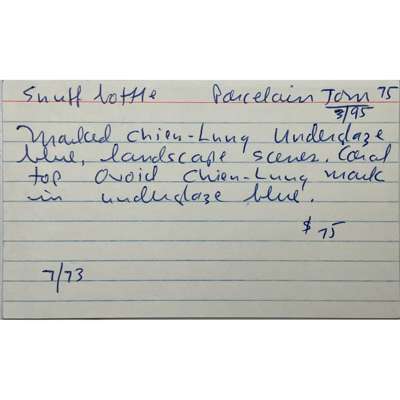 Snuff bottle Porcelain Torn 75
3/95
Marked Chien-Lung Underglaze
blue, landscape scenes. Coral
top Ovoid Chien-Lung mark
in underglaze blue.
$75
7/73